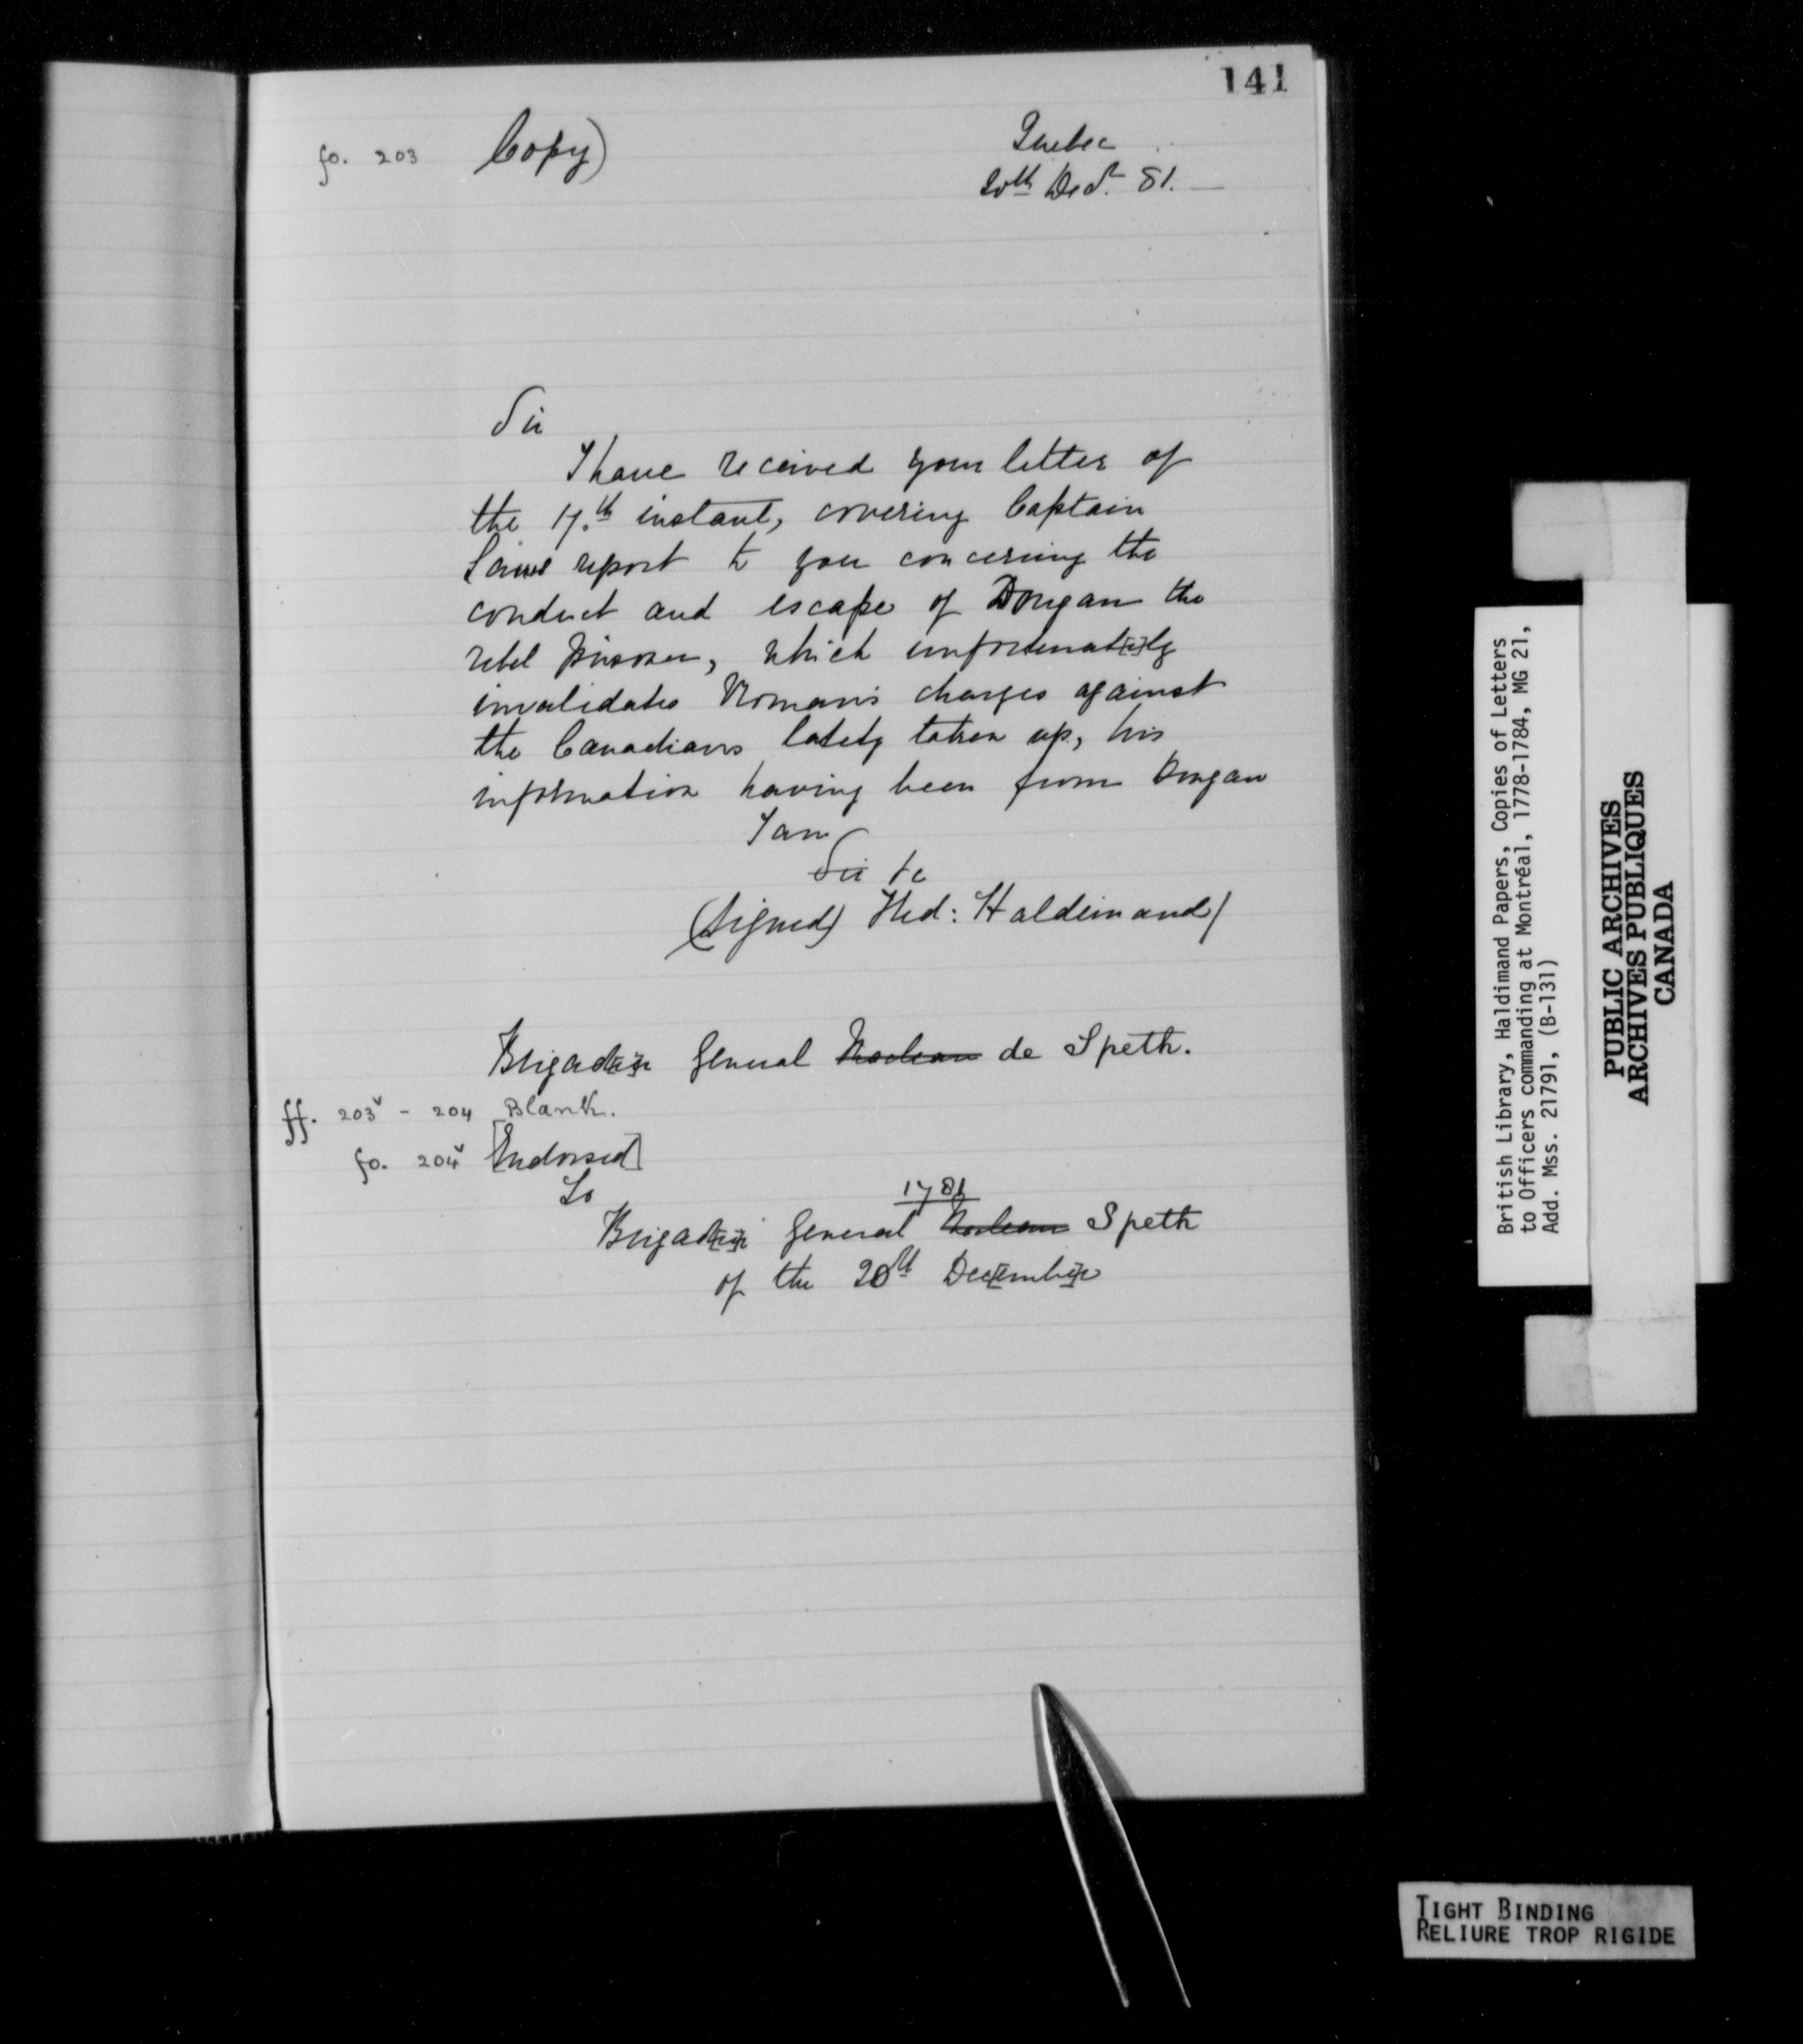 141
fo. 203 Copy)
Quebec
20th Decr. 81.
Sir
I have received your letter of
the 17.th instant, covering Captain
report to you concerning the
conduct and escape of Dongan the
rebel prisoner, which unfortunat[e]ly
invalidates charges against
the Canadians lately taken up, his
information having been from Dongan
I am
Sir &c
(Signed) Fred: Haldimand/
Brigad[ie]r General de Speth.
ff. 203v - 204 Blank.
fo. 204v [Endorsed]
To
1781
Brigad[ie]r General Speth
of the 20th Dec[embe]r
British Library, Haldimand Papers, Copies of Letters
to Officers commanding at Montréal, 1778-1784, MG 21,
Add. Mss. 21791, (B-131)
PUBLIC ARCHIVES
ARCHIVES PUBLIQUES
CANADA
TIGHT BINDING
RELIURE TROP RIGIDE